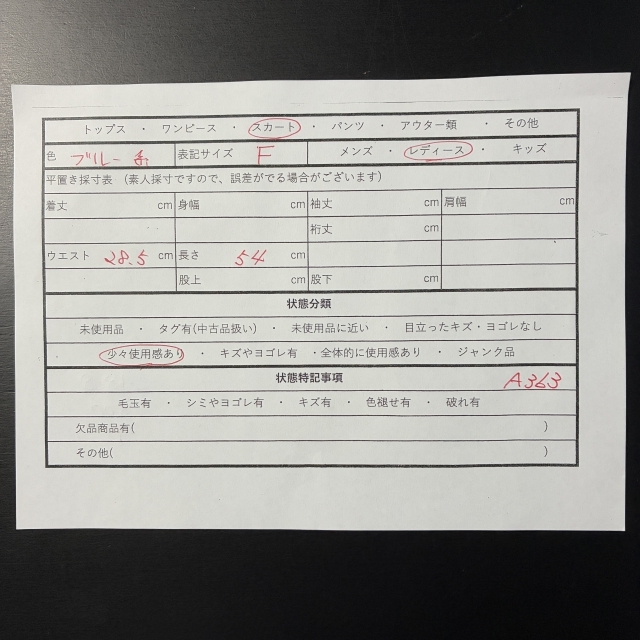 トップス ・ ワンピース ・ スカート ・ パンツ ・ アウター類 ・ その他
色 ブルー系 表記サイズ F メンズ ・ レディース ・ キッズ
平置き採寸表 (素人採寸ですので、誤差がでる場合がございます)
着丈 cm 身幅 cm 袖丈 cm 肩幅 cm
裄丈 cm
ウエスト 28.5 cm 長さ 54 cm
股上 cm 股下 cm
状態分類
未使用品 ・ タグ有(中古品扱い) ・ 未使用品に近い ・ 目立ったキズ・ヨゴレなし
少々使用感あり ・ キズやヨゴレ有 ・全体的に使用感あり ・ ジャンク品
状態特記事項 A363
毛玉有 ・ シミやヨゴレ有 ・ キズ有 ・ 色褪せ有 ・ 破れ有
欠品商品有( )
その他( )